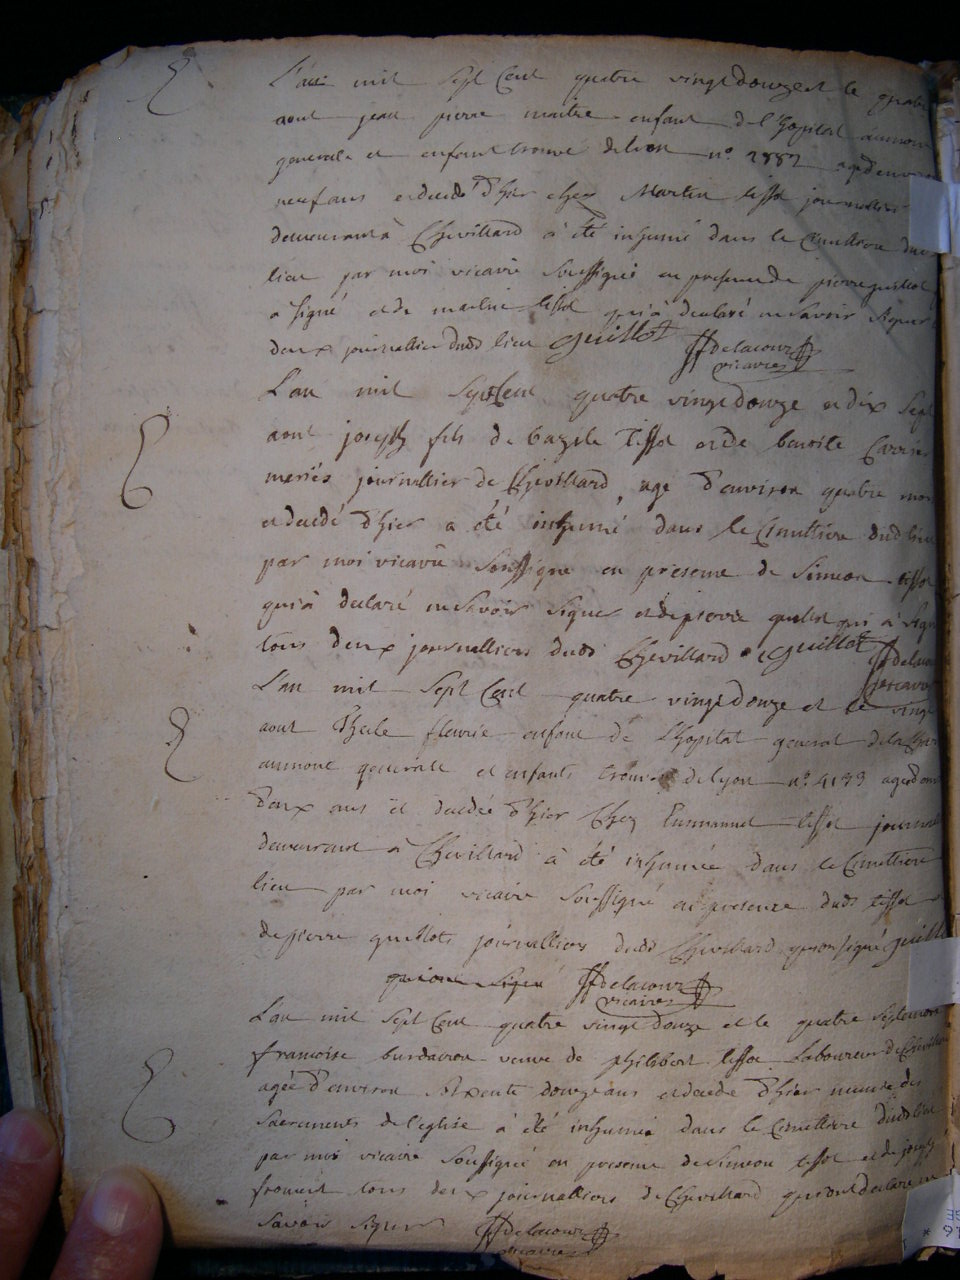 L'an mil sept Cent quatre vingt douze et le quatre
aout jean pierre maitre enfant de l'hopital aumone
generale et enfant trouvé de lion n° 2882 agé d'environ
neuf ans et decedé d'hier chez Martin tissot journallier
demeurant à Chevillard à été inhumé dans le Cimettiere dud
lieu par moi vicaire soussigné en presence de pierre guillot
a signé et de martin tissot qui à declaré ne savoir signer
deux journallier dud lieu guillot ffdelacour
vicaire
L'an mil sept Cent quatre vingt douze et dix sept
aout joseph fils de bazile Tissot et de benoite Carrier
meriés journallier de Chevillard, agé d'environ quatre mois
et decedé d'hier a été inhumé dans le Cimettiere dud lieu
par moi vicaire soussigné en presence de Simeon tissot
qui à declaré ne savoir signer et de pierre guillot qui à signé
tous deux journalliers dud Chevillard guillot ffdelacour
vicaire
L'an mil sept Cent quatre vingt douze et le vingt
aout fleurie enfant de l'hopital general de la
aumone generale et enfants trouvés de lyon n° 4133 agée
deux ans et decedée d'hier chez Emmanuel tissot journallier
demeurant à Chevillard à été inhumée dans le Cimettiere
lieu par moi vicaire soussigné en presence dud tissot
de pierre guillot journalliers dud Chevillard qui ont signé guillot
qui ont signé ffdelacour
vicaire
L'an mil sept Cent quatre vingt douze et le quatre septembre
francoise burdairon veuve de philibert tissot laboureur de Chevillard
agée d'environ soixante douze ans et decedée d'hier munie des
Sacrements de l'eglise à été inhumée dans le Cimettiere dud lieu
par moi vicaire soussigné en presence de Simeon tissot et de joseph
froment tous deux journalliers de Chevillard qui ont declaré ne
savoir signer ffdelacour
vicaire